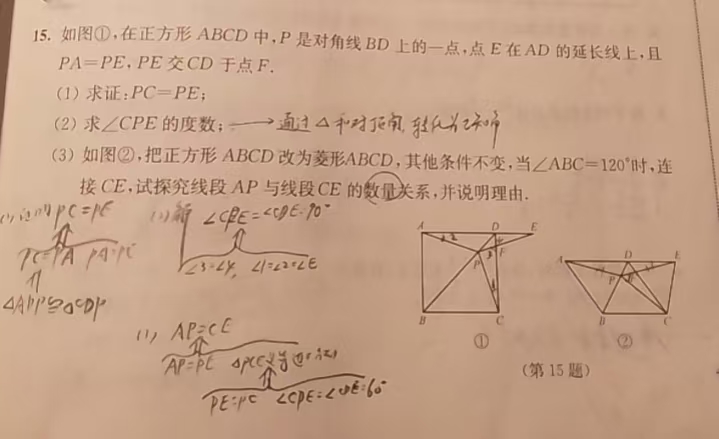 15. 如图①,在正方形 ABCD 中,P 是对角线 BD 上的一点,点 E 在 AD 的延长线上,且
PA=PE,PE 交 CD 于点 F.
(1) 求证:PC=PE;
(2) 求∠CPE 的度数; → 通过△和对顶角,转化为
(3) 如图②,把正方形 ABCD 改为菱形ABCD,其他条件不变,当∠ABC=120°时,连
接 CE,试探究线段 AP 与线段CE 的数量关系,并说明理由.
PC=PE
PC=PA PA=PE
△ADP≌△CDP
∠CPE=∠CDE=90°
∠3=∠4, ∠1=∠2=∠E
AP=CE
AP=PE △PCE是等边
PE=PC ∠CPE=∠CDE=60°
A D E
1 2
P F
3
B C
①
A D E
P F
B C
②
(第 15 题)